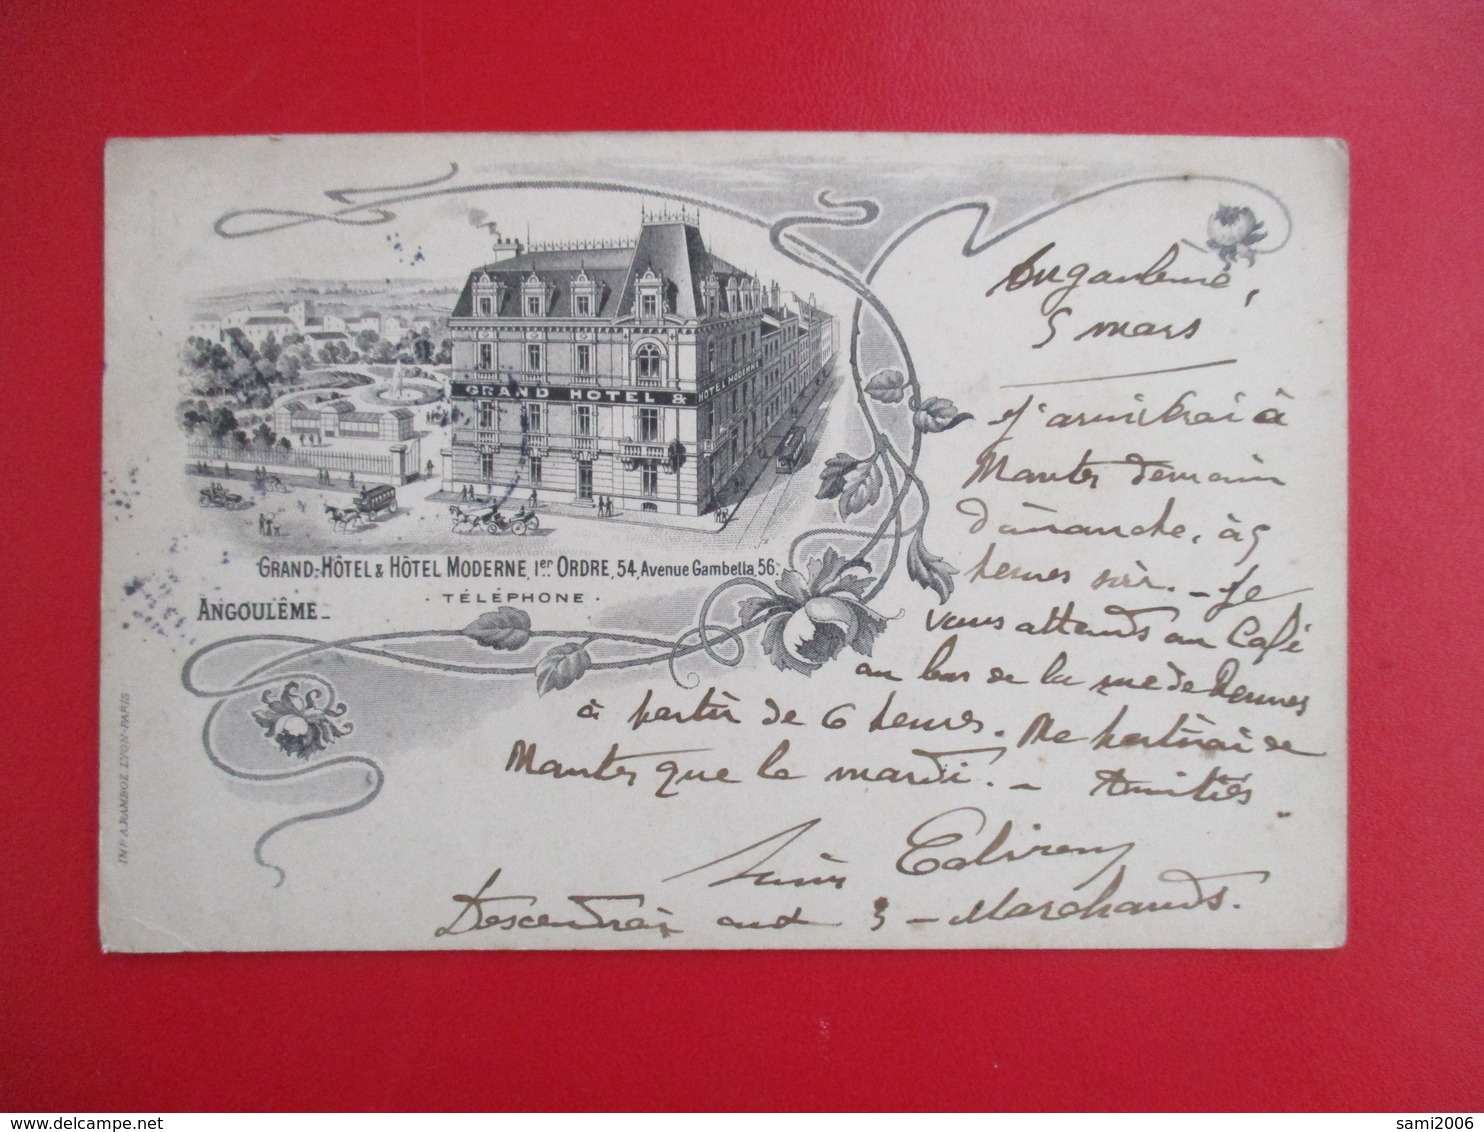 GRAND HOTEL &
HOTEL MODERNE
GRAND-HÔTEL & HÔTEL MODERNE, 1er ORDRE, 54, Avenue Gambetta, 56.
· TÉLÉPHONE ·
ANGOULÊME_
IMP. A. RAMBOZ. LYON-PARIS
Angoulême,
5 mars
J'arriverai à
Nantes demain
dimanche, à 5
heures soir. - Je
vous attends au Café
au bas de la rue de Rennes
à partir de 6 heures. Ne partirai de
Nantes que le mardi. - Amitiés
Descendrai aux 3 - Marchands.
delcampe.net
sami2006